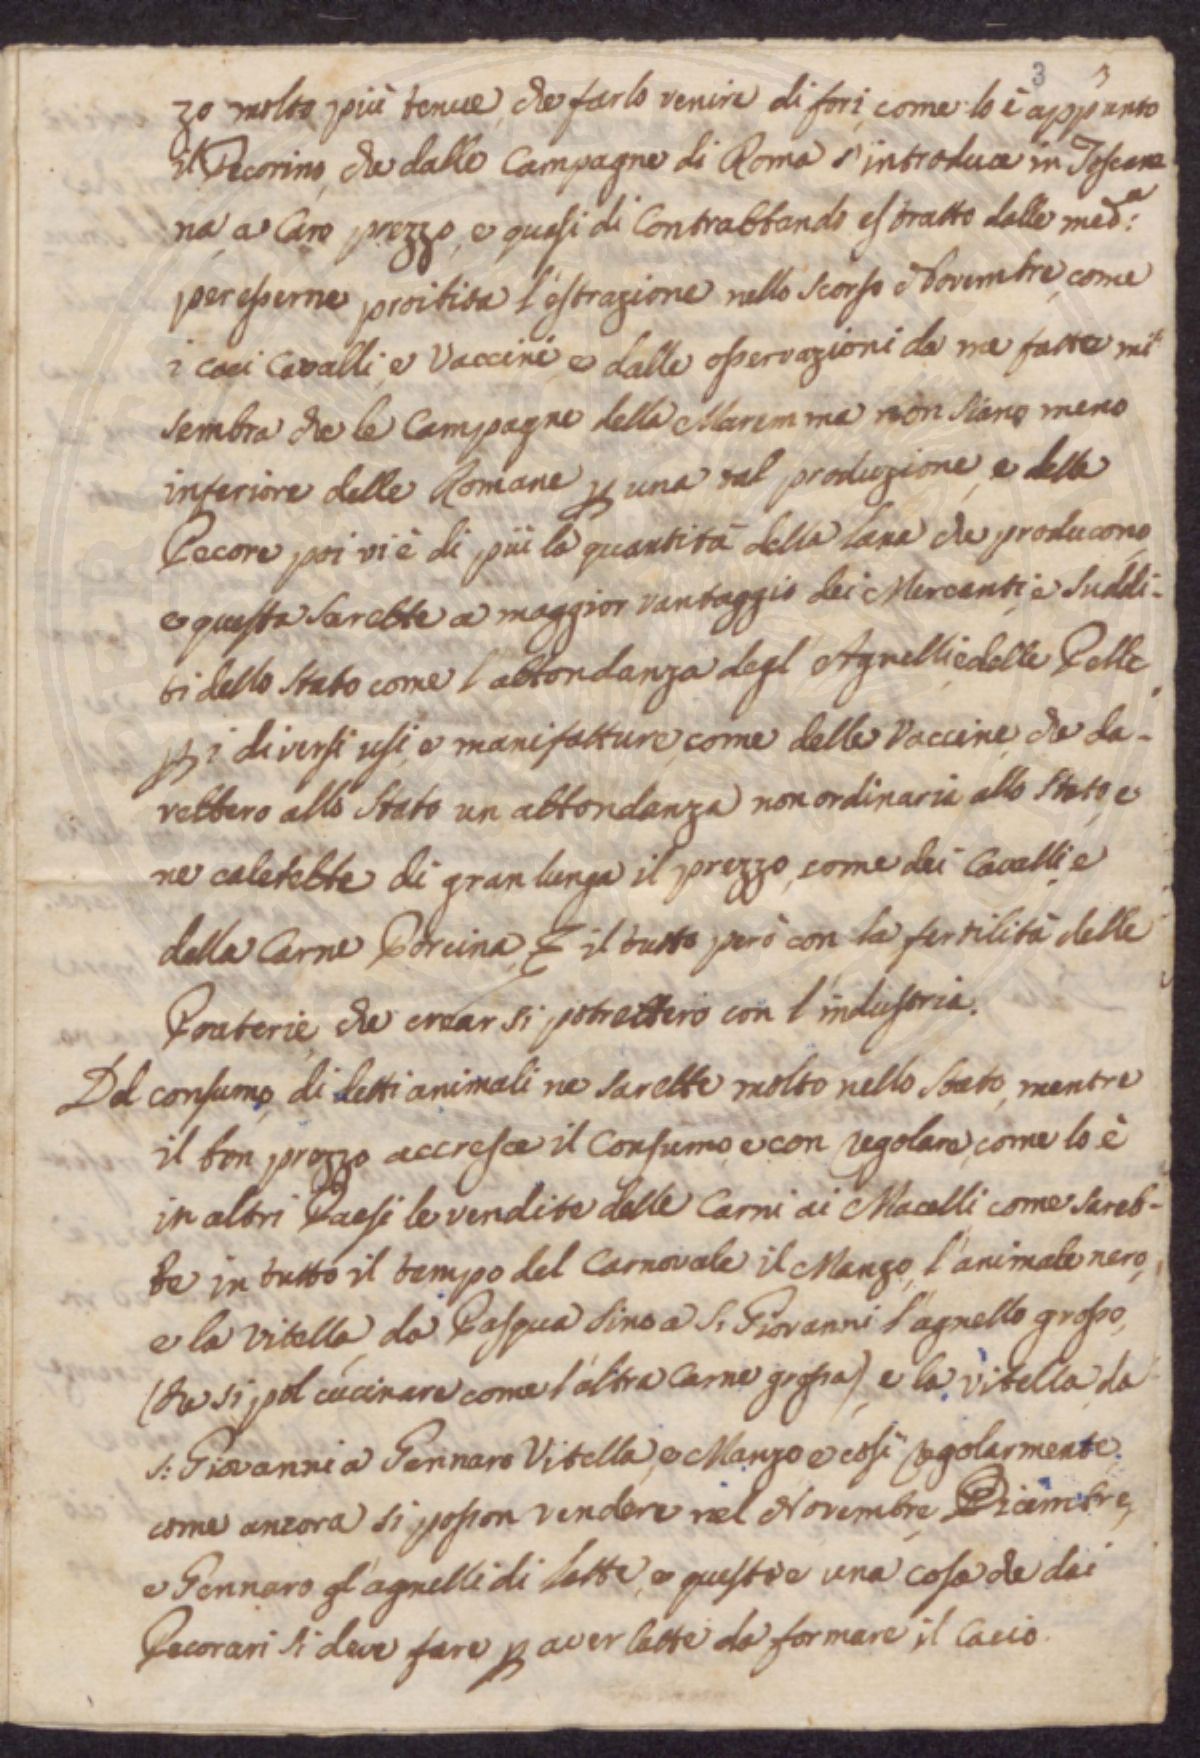 3 3
zo molto più tenue, che farlo venire di fori, come lo è appunto
il Pecorino, che dalle Campagne di Roma s'introduce in Toscana
na, a Caro prezzo, e quasi di Contrabbando estratto dalle med.e
per esserne proibita l'estrazione nello scorso Novembre, come
i caci Cavalli, e Vaccini, e dalle osservazioni da me fatte mi
sembra che le Campagne della Maremma non siano meno
inferiore delle Romane p una tal produzione, e delle
Pecore poi vi è di più la quantità della lana che producono
e questa sarebbe a maggior vantaggio dei Mercanti, e suddi-
ti dello Stato come l'abbondanza degl'Agnelli, e delle Pelle
p i diversi usi, e manifatture, come delle Vaccine, che da-
rebbero allo Stato un abbondanza non ordinaria allo Stato, e
ne calerebbe di gran lunga il prezzo, come dei Cavalli, e
della Carne Porcina, E il tutto però con la fertilità delle
Praterie, che crear si potrebbero con l'industria.
Del consumo, di detti animali ne sarebbe molto nello Stato, mentre
il bon prezzo accresce il Consumo, e con regolare, come lo è
in altri Paesi le vendite delle Carni ai Macelli come sareb-
be in tutto il tempo del Carnovale il Manzo, l'animale nero,
e la Vitella, da Pasqua sino a S. Giovanni l'agnello grosso,
(che si pol cucinare come l'altra Carne grossa), e la vitella, da
S: Giovanni a Gennaro Vitella, e Manzo e così regolarmente
come ancora si posson vendere nel Novembre, Dicembre,
e Gennaro gl'agnelli di latte, e questo e una cosa che dai
Pecorari si deve fare p aver latte da formare il Cacio.